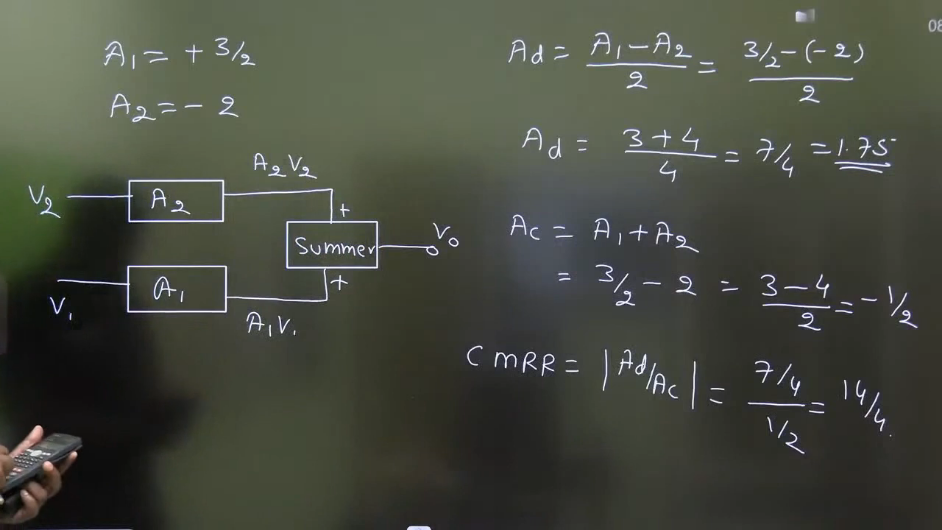 A₁ = + 3/2
A₂ = - 2
A₂V₂
V₂
A₂
+
Summer
V₀
+
A₁
V₁
A₁V₁
Ad = A₁ - A₂ / 2 = 3/2 - (-2) / 2
Ad = 3 + 4 / 4 = 7/4 = 1.75
Ac = A₁ + A₂
= 3/2 - 2 = 3 - 4 / 2 = - 1/2
CMRR = |Ad/Ac| = 7/4 / 1/2 = 14/4.
08